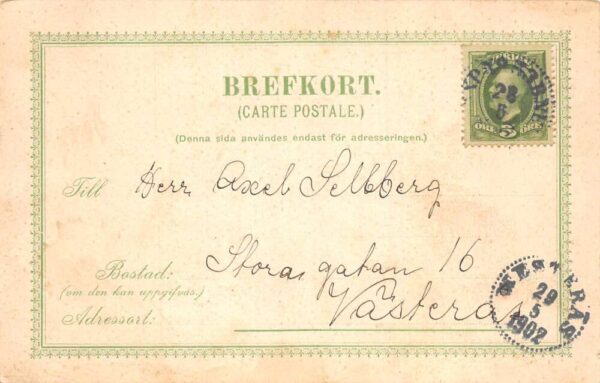 BREFKORT.
(CARTE POSTALE.)
(Denna sida användes endast för adresseringen.)
5 ÖRE
28
Till Herr Axel Sellberg
Bostad: Storagatan 16
(om den kan uppgifvas.)
Västerås
Adressort:
WESTERÅS
29
5
1902